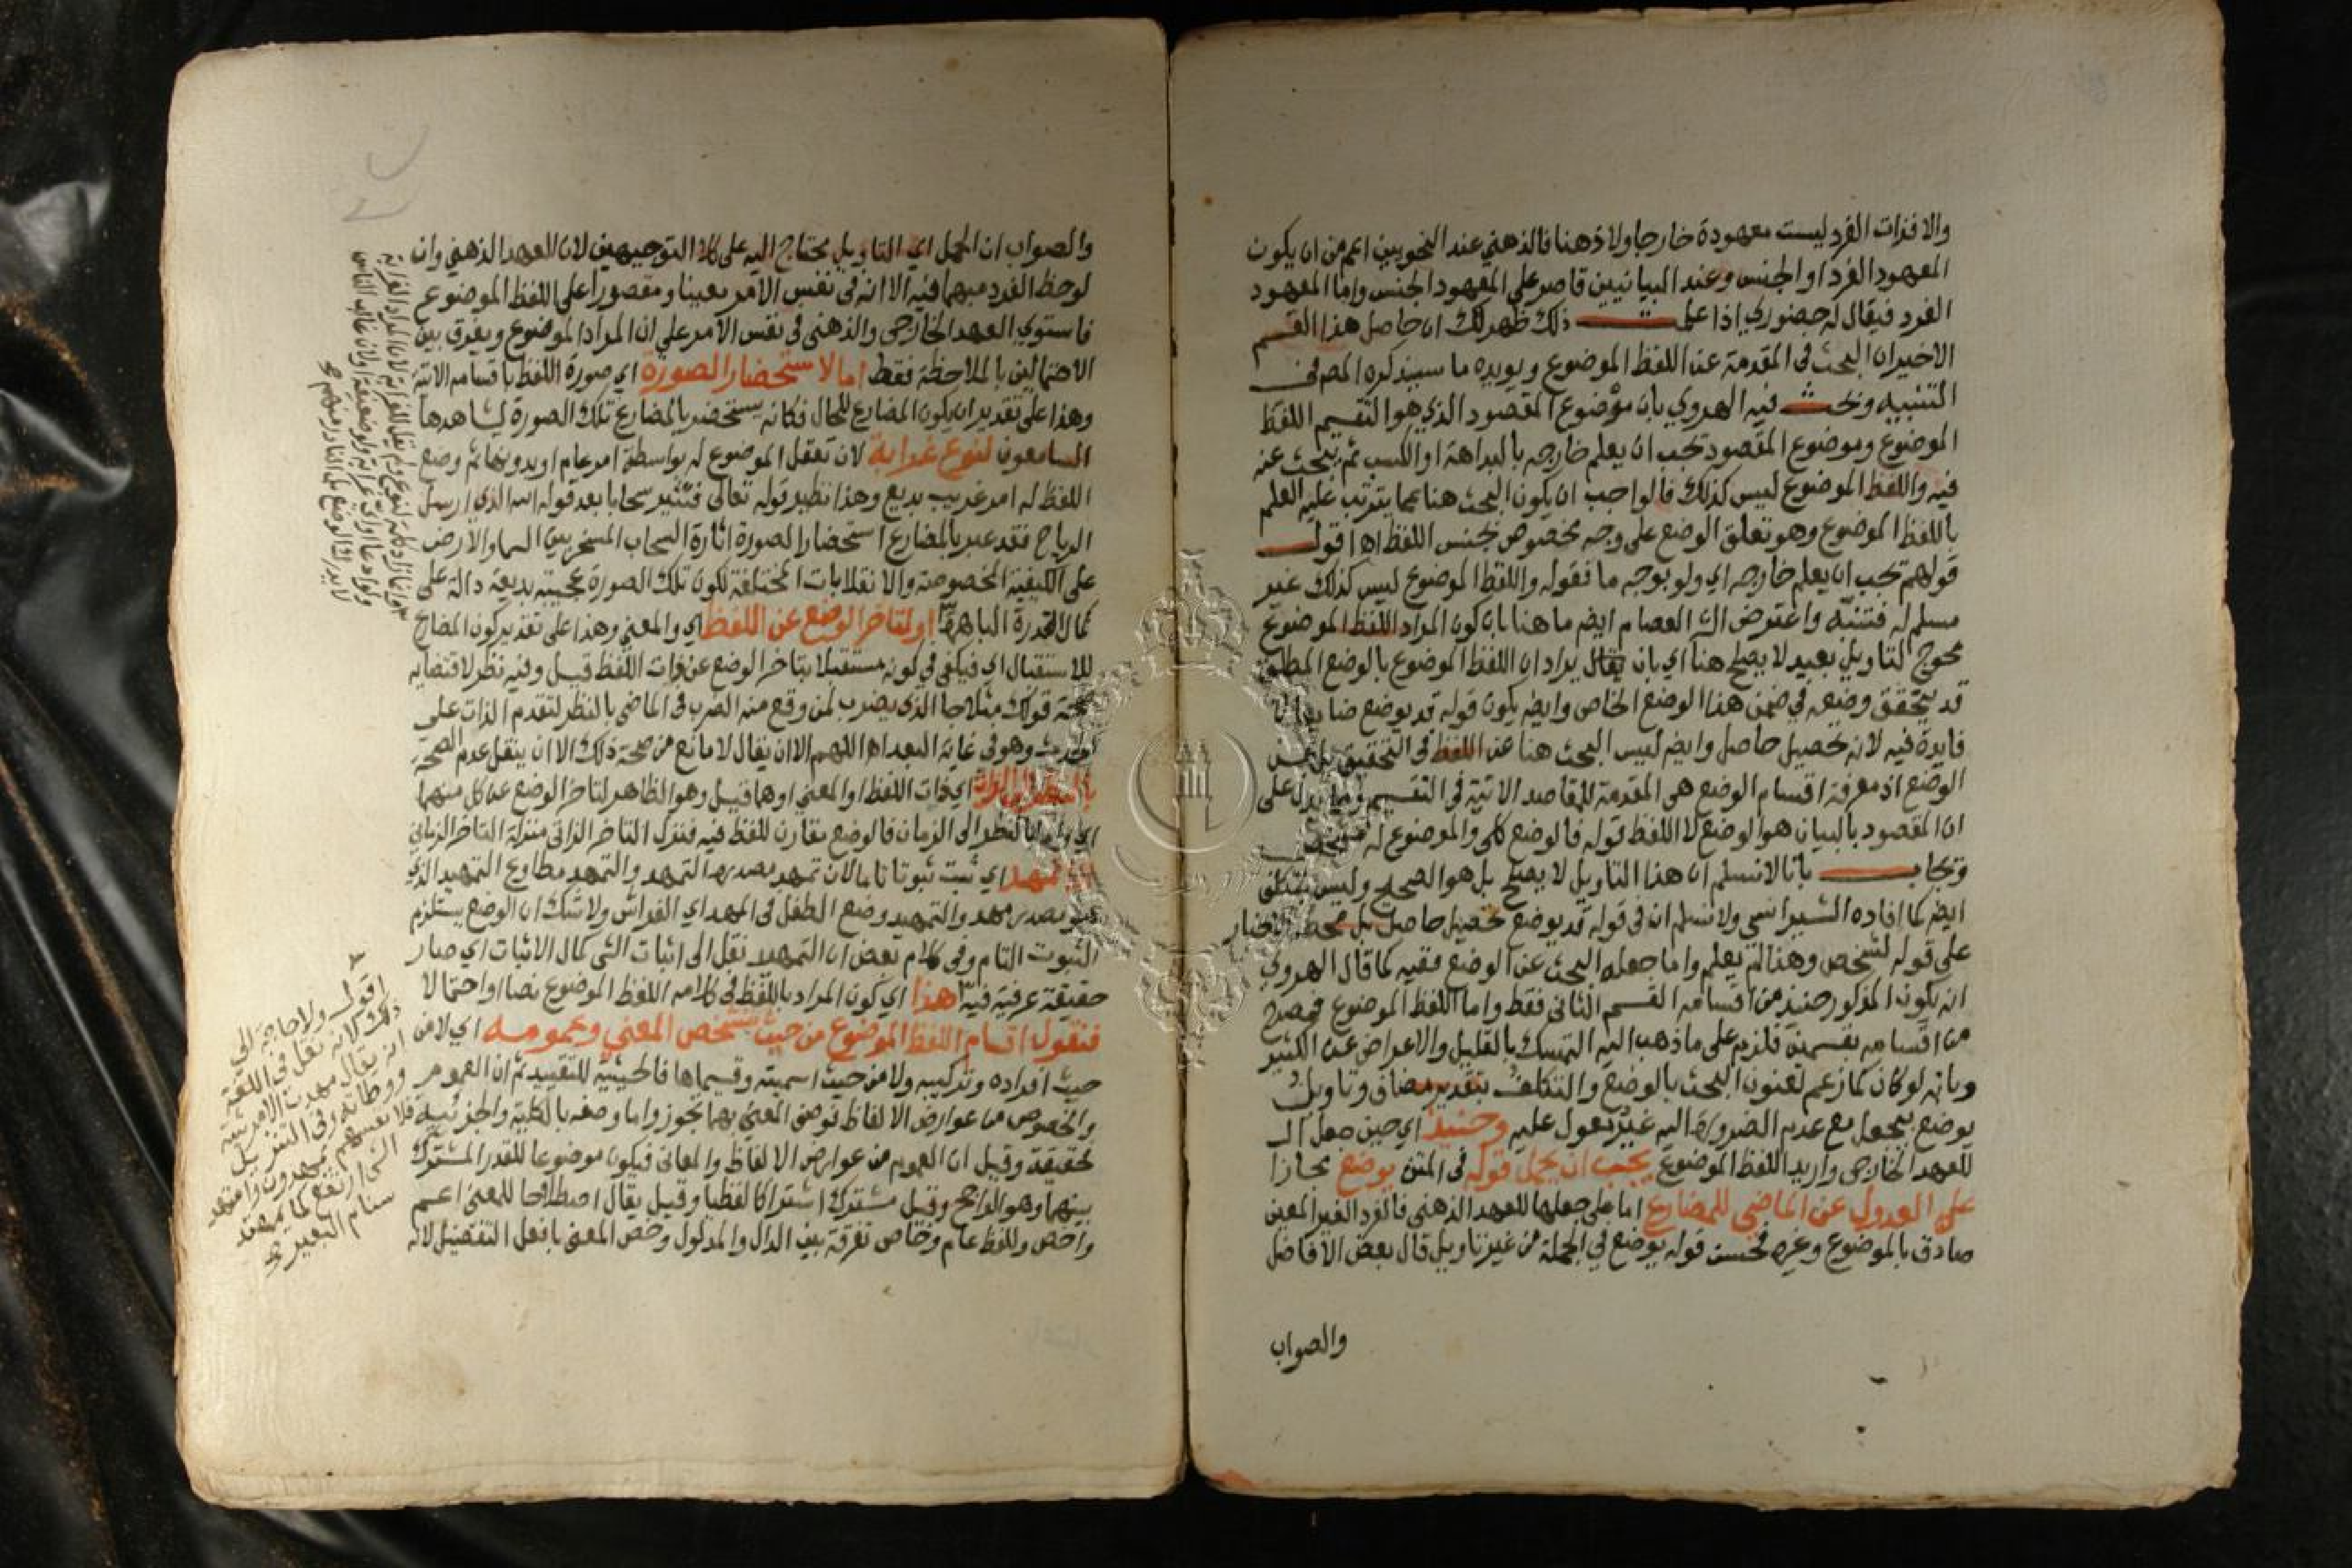 والا فذات الفرد ليست معهودة خارجا ولا ذهنا فالذهني عند النحويين اعم من ان يكون
المعهود الفرد او الجنس وعند البيانيين قاصر علي المعهود الجنس واما المعهود
الفرد فيقال له حضوري اذا علمت ذلك ظهر لك ان حاصل هذا القسم
الاخير ان البحث في المقدمة عن اللفظ الموضوع ويويده ما سيذكره المص في
التنبيه وبحث فيه الهروي بان موضوع المقصود الذي هو التقسيم اللفظ
الموضوع وموضوع المقصود يجب ان يعلم خارجه بالبداهة او الكسب ثم يبحث عنه
فيه واللفظ الموضوع ليس كذلك فالواجب ان يكون البحث هنا عما يترتب عليه العلم
باللفظ الموضوع وهو تعلق الوضع على وجه مخصوص بجنس اللفظ اه اقول
قولهم يجب ان يعلم خارجه اي ولو بوجه ما فقوله واللفظ الموضوع ليس كذلك غير
مسلم له فتنبه واعترض الـ العصام ايضا ما هنا بان كون المراد اللفظ الموضوع
محوج لتاويل بعيد لا يصلح هنا اي بان يقال يراد ان اللفظ الموضوع بالوضع المطلق
قد يتحقق وضعه في ضمن هذا الوضع الخاص وايضا يكون قوله قد يوضع ضايعا لا
فايدة فيه لانه تحصيل حاصل وايضا ليس البحث هنا عن اللفظ في التحقيق بل عن
الوضع اذ معرفة اقسام الوضع هي المقدمة للمقاصد الاتية في التقسيم ومما يدل على
ان المقصود بالبيان هو الوضع لا اللفظ قوله فالوضع كلي والموضوع له مشخص
ويجاب بانا لا نسلم ان هذا التاويل لا يصلح بل هو الصحيح وليس بتكلف
ايضا كما افاده الشيرانسي ولا نسلم ان في قوله قد يوضع تحصيل حاصل بل محط الاخبار
على قوله لشخص وهذا لم يعلم واما جعله البحث عن الوضع ففيه كما قال الهروي
انه يكون المذكور حينئذ من اقسامه القسم الثاني فقط واما اللفظ الموضوع فمصرح
من اقسامه بقسمين فلزم على ما ذهب اليه التمسك بالقليل والاعراض عن الكثير
وبانه لو كان كما زعم لعنون البحث بالوضع والتكلف بتقدير مضاف وتاويل
يوضع بجعل مع عدم الضرورة اليه غير معول عليه وحينئذ اي حين جعل الـ
للعهد الخارجي واريد اللفظ الموضوع يجب ان يحمل قوله في المتن يوضع مجازا
على العدول عن الماضي للمضارع اما على جعلها للعهد الذهني فالفرد الغير المعين
صادق بالموضوع وغيره فحسن قوله يوضع في الجملة من غير تاويل قال بعض الافاضل
والصواب
والصواب ان الحمل اي التاويل محتاج اليه على كلا التوجيهين لان العهد الذهني وان
لوحظ الفرد مبهما فيه الا انه في نفس الامر معينا ومقصورا على اللفظ الموضوع
فاستوي العهد الخارجي والذهني في نفس الامر علي ان المراد الموضوع ويفرق بين
الاحتمالين بالملاحظة فقط اما لاستحضار الصورة اي صورة اللفظ باقسامه الاتية
وهذا على تقدير ان يكون المضارع للحال فكانه يستحضر بالمضارع تلك الصورة ليشاهدها
السامعون لنوع غرابة لان تعقل الموضوع له بواسطة امر عام او بدونها ثم وضع
اللفظ له امر غريب بديع وهذا نظير قوله تعالى فتثير سحابا بعد قوله الله الذي ارسل
الرياح فقد عبر بالمضارع استحضارا لصورة اثارة السحاب المسخر بين السما والارض
على الكيفية المخصوصة والانقلابات المختلفة لكون تلك الصورة عجيبة بديعة دالة على
كمال القدرة الباهرة او لتاخر الوضع عن اللفظ اي والمعني وهذا على تقدير كون المضارع
للاستقبال اي فيكفي في كونه مستقبلا بتاخر الوضع عن ذات اللفظ قيل وفيه نظر لاقتضايه
صحة قولك مثلا جا الذي يضرب لمن وقع منه الضرب في الماضي بالنظر لتقدم الذات على
الحدث وهو في غاية البعد اه اللهم الا ان يقال لا مانع من صحة ذلك الا ان ينقل عدم الصحة
بالنظر الى الذات اي ذات اللفظ او المعني او هما قيل وهو الظاهر لتاخر الوضع عن كل منهما
اي واما بالنظر الى الزمان فالوضع مقارن للفظ فيه فنزل التاخر الذاتي منزلة التاخر الزماني
اذا تمهد اي ثبت ثبوتا تاما لان تمهد مصدره التمهد والتمهد مطاوع التمهيد الذي
هو مصدر مهد والتمهيد وضع الطفل في المهد اي الفراش ولا شك ان الوضع يستلزم
الثبوت التام وفي كلام بعض ان التمهيد نقل الى اثبات الشي كمال الاثبات اي صار
حقيقة عرفية فيه هذا اي كون المراد باللفظ في كلامه اللفظ الموضوع نصا او احتمالا
فنقول اقسام اللفظ الموضوع من حيث تشخص المعني وعمومه اي لا من
حيث افراده وتركيبه ولا من حيث اسميته وقسيماها فالحيثية للتقييد ثم ان العموم
والخصوص من عوارض الالفاظ فوصف المعني بهما تجوز واما وصفه بالكلية والجزئية
فحقيقة وقيل ان العموم من عوارض الالفاظ والمعاني فيكون موضوعا للقدر المشترك
بينهما وهو الراجح وقيل مشترك اشتراكا لفظيا وقيل يقال اصطلاحا للمعنى اعم
واخص وللفظ عام وخاص تفرقة بين الدال والمدلول وخص المعني بافعل التفضيل لانه
اقول ولا حاجة الى
ذلك لانه نقل في اللغة
انه يقال مهدت الامر ثبته
ووطاته وفي التنزيل
فلانفسهم يمهدون وامتهد
الشي ارتفع كما يمتهد
سنام البعير